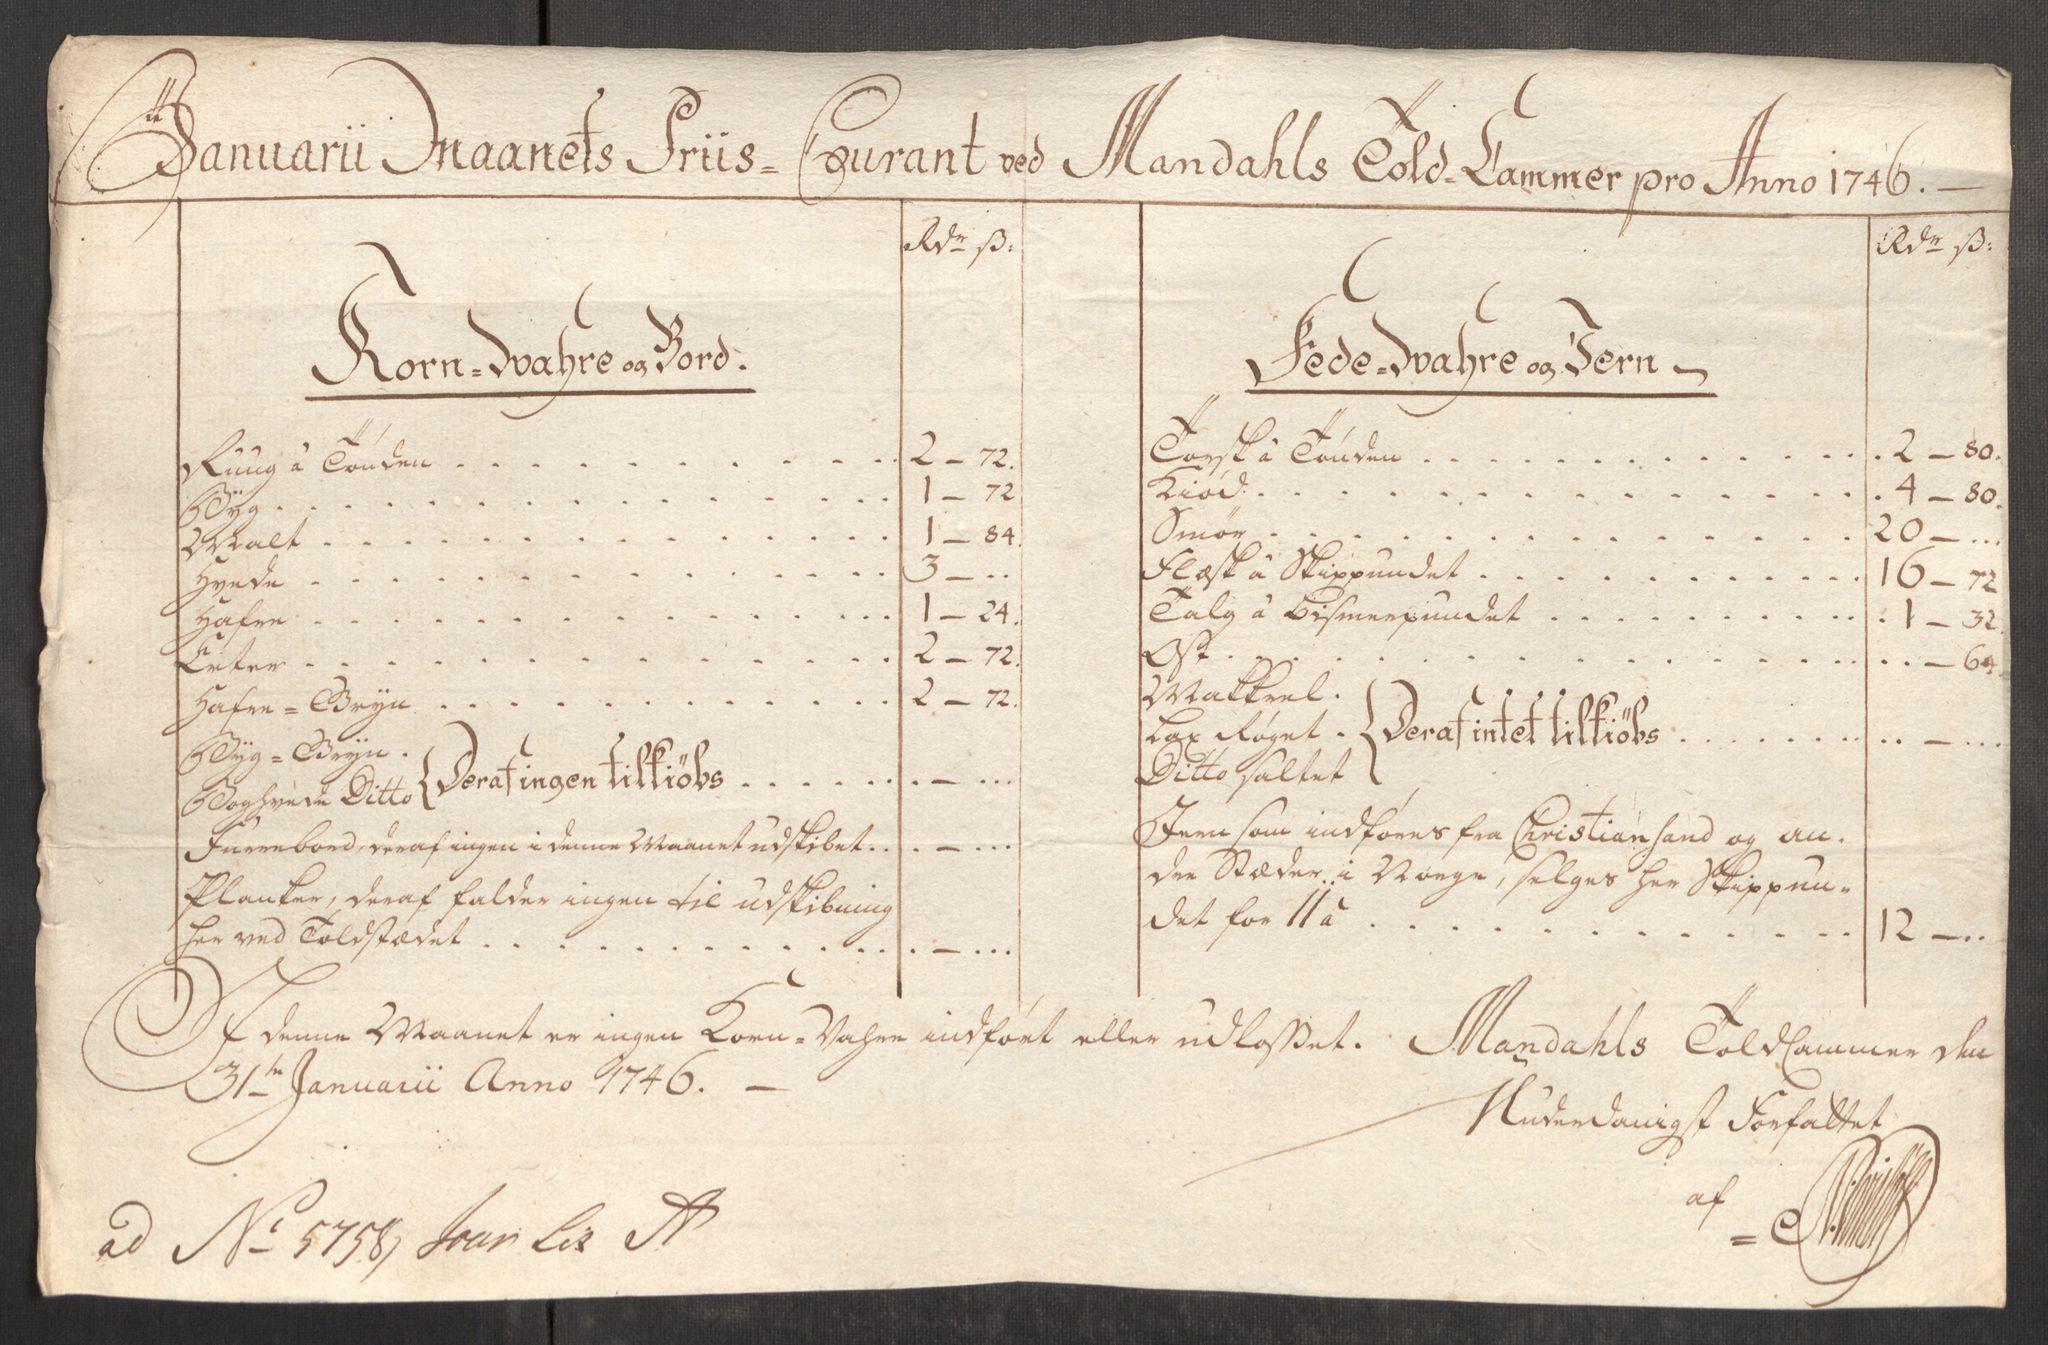 Januarii Maanets Priis= Courant ved Mandahls Told=Cammer pro Anno 1746.
Rdr ß:
Korn=Wahre og Bord.
Ruug â Tønden 2 – 72.
Byg 1 – 72
Malt 1 – 84.
Hvede 3 – ..
Hafre 1 – 24.
Erter 2 – 72.
Hafre=Gryn 2 – 72.
Byg=Gryn.
Boghvede Ditto { Deraf ingen tilkiøbs . – ...
Furrebord, deraf ingen i denne Maanet udskibet . – ...
Planker, deraf falder ingen til udskibning
her ved Toldstædet . – ...
Rdr ß:
Fede=Wahre og Jern
Torsk â Tønden 2 – 80.
Kiød 4 – 80.
Smør 20 – ...
Flæsk â Skippundet 16 – 72
Talg â Bismerpundet 1 – 32.
Ost – 64
Makkrel.
Lax Røget.
Ditto saltet { Deraf intet tilkiøbs .. – ...
Jern som indføres fra Christiansand og an-
dre Stæder i Norge, selges her Skippun-
det for 11 â 12 – ..
I denne Maanet er ingen Korn=Vahre indført eller udlosset. Mandahls ToldCammer den
31te Januarii Anno 1746.
Allunderdanigst Forfattet
af
ad No 5758,